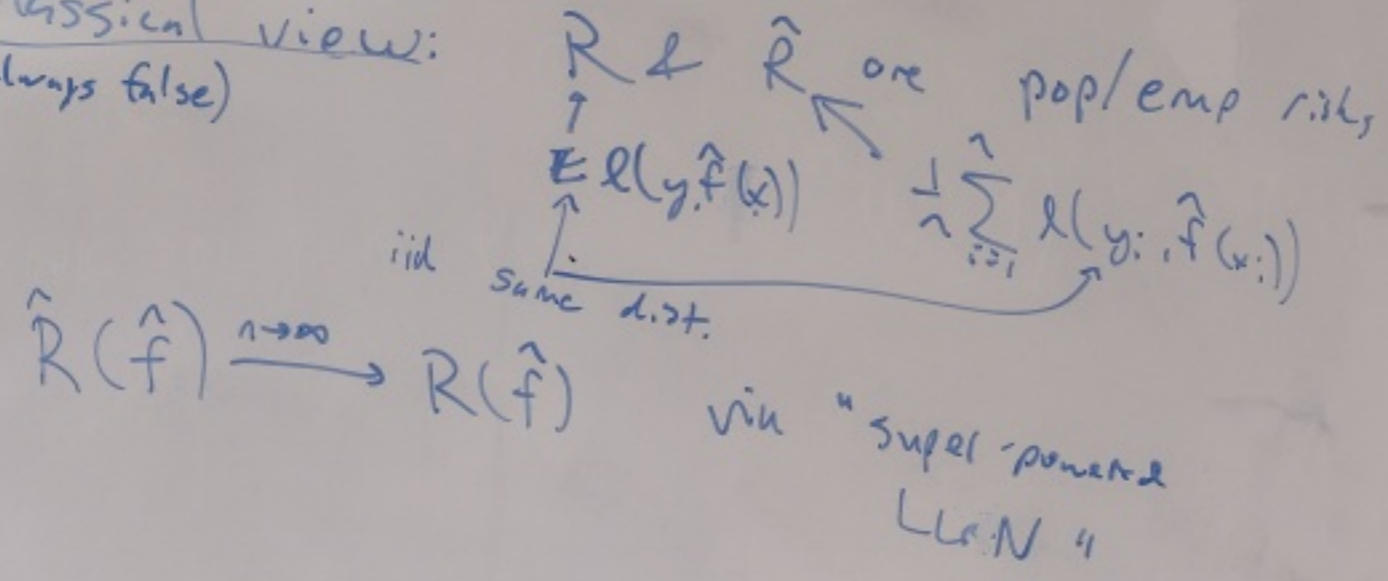 assical view: R & R̂ are pop/emp risk,
lways false)
E l(y, f̂(x)) 1/n Σ_{i=1}^n l(y_i, f̂(x_i))
iid same dist.
R̂(f̂) n→∞ → R(f̂) via "super-powered
LLN"